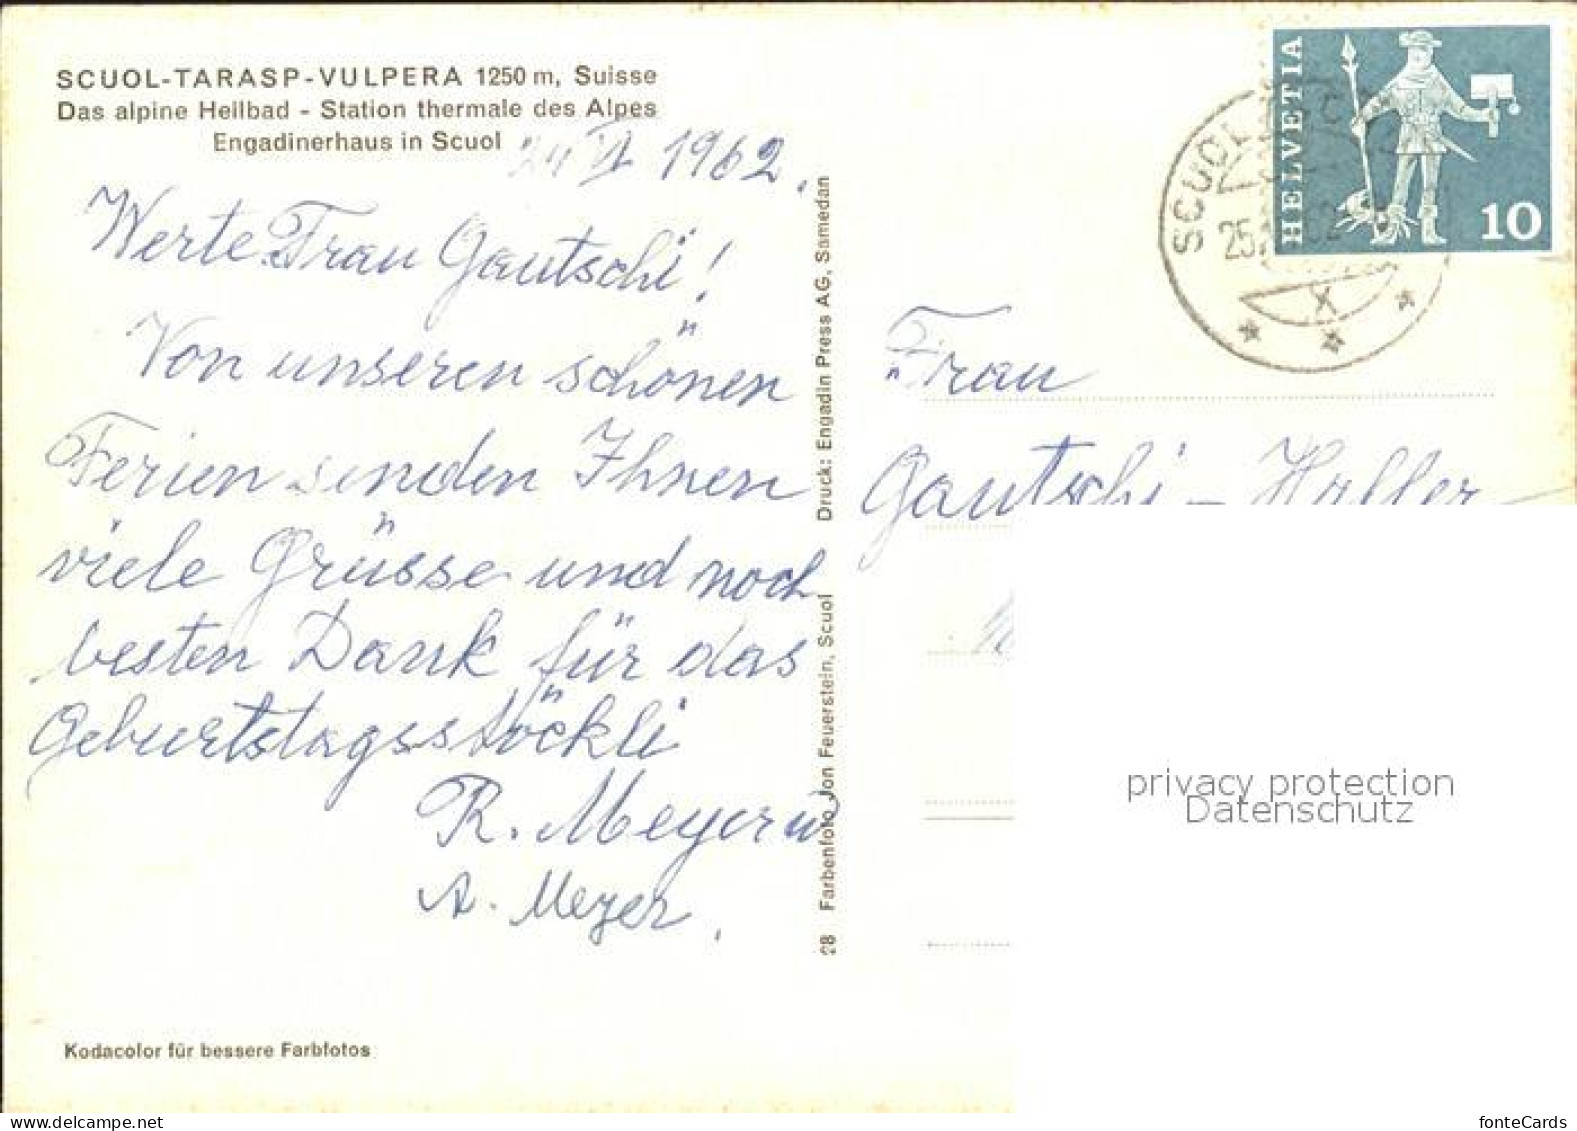 SCUOL-TARASP-VULPERA 1250 m, Suisse
Das alpine Heilbad - Station thermale des Alpes
Engadinerhaus in Scuol
1962.
Werte Frau Gautschi!
Von unseren schönen
Ferien senden Ihnen
viele Grüsse und noch
besten Dank für das
Geburtstagsstöckli
R. Meyer u
A. Meyer.
Kodacolor für bessere Farbfotos
28 Farbenfoto Jon Feuerstein, Scuol Druck: Engadin Press AG, Samedan
HELVETIA
10
SCUOL
25
X
Frau
Gautschi - Haller
privacy protection
Datenschutz
fonteCards